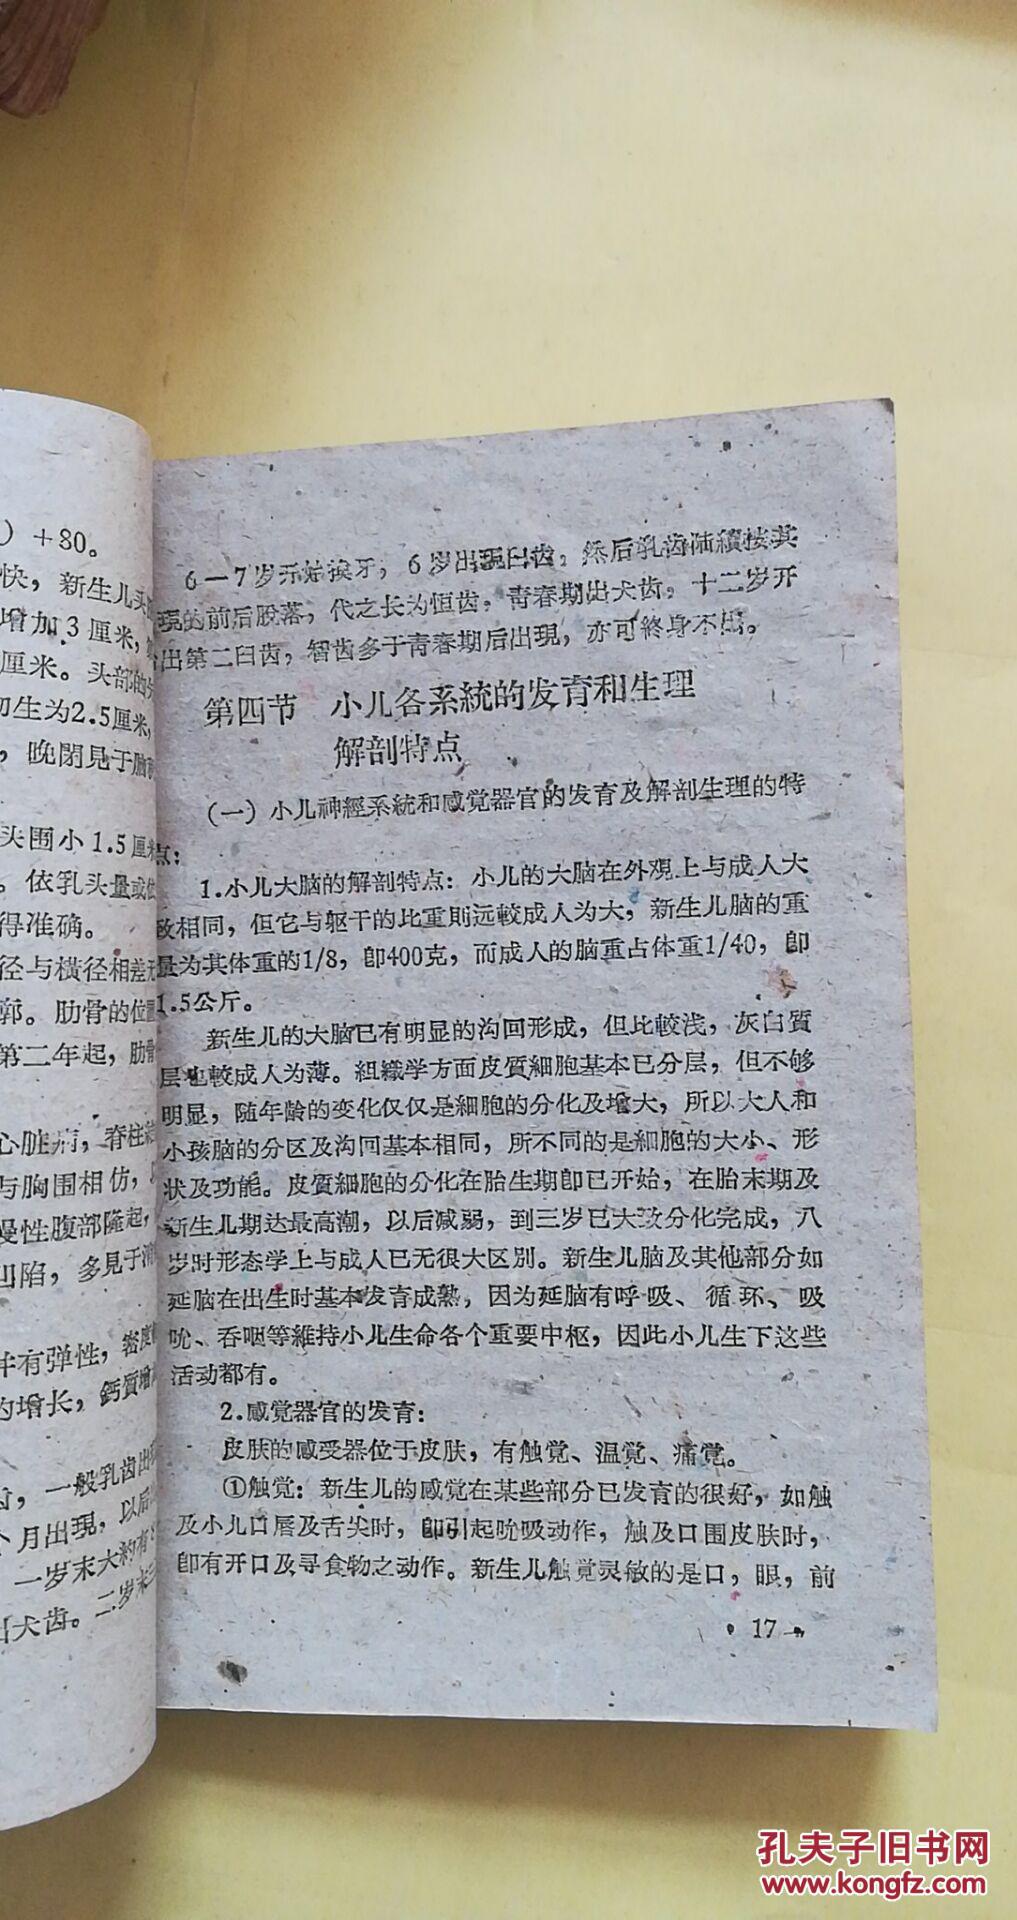 ）+80。
快，新生儿头
增加3厘米，
厘米。头部的
初生为2.5厘米，
，晚閉見于脑
头围小1.5厘米
。依乳头量或
得准确。
径与橫径相差
郭。肋骨的位置
第二年起，肋骨
心脏病，脊柱
与胸围相仿，
慢性腹部隆起，
凹陷，多見于
并有弹性，密度
的增长，鈣質增
齿，一般乳齿出
个月出現，以后
一岁末大約有
出犬齿。二岁末
6—7岁开始换牙，6岁出現臼齿，然后乳齿陆續按其
現的前后脫落，代之长为恒齿，青春期出犬齿，十二岁开
出第二臼齿，智齿多于青春期后出現，亦可終身不出。
第四节　小儿各系統的发育和生理
解剖特点
（一）小儿神經系統和感觉器官的发育及解剖生理的特
点：
1.小儿大脑的解剖特点：小儿的大脑在外观上与成人大
致相同，但它与躯干的比重則远較成人为大，新生儿脑的重
量为其体重的1/8，卽400克，而成人的脑重占体重1/40，卽
1.5公斤。
新生儿的大脑已有明显的沟回形成，但比較浅，灰白質
层也較成人为薄。組織学方面皮質細胞基本已分层，但不够
明显，随年龄的变化仅仅是細胞的分化及增大，所以大人和
小孩脑的分区及沟回基本相同，所不同的是細胞的大小、形
状及功能。皮質細胞的分化在胎生期卽已开始，在胎末期及
新生儿期达最高潮，以后减弱，到三岁已大致分化完成，八
岁时形态学上与成人已无很大区別。新生儿脑及其他部分如
延脑在出生时基本发育成熟，因为延脑有呼吸、循环、吸
吮、吞咽等維持小儿生命各个重要中枢，因此小儿生下这些
活动都有。
2.感觉器官的发育：
皮肤的感受器位于皮肤，有触觉、温觉、痛觉。
①触觉：新生儿的感觉在某些部分已发育的很好，如触
及小儿口唇及舌尖时，卽引起吮吸动作，触及口围皮肤时，
卽有开口及寻食物之动作。新生儿触觉灵敏的是口，眼，前
• 17 •
孔夫子旧书网
www.kongfz.com